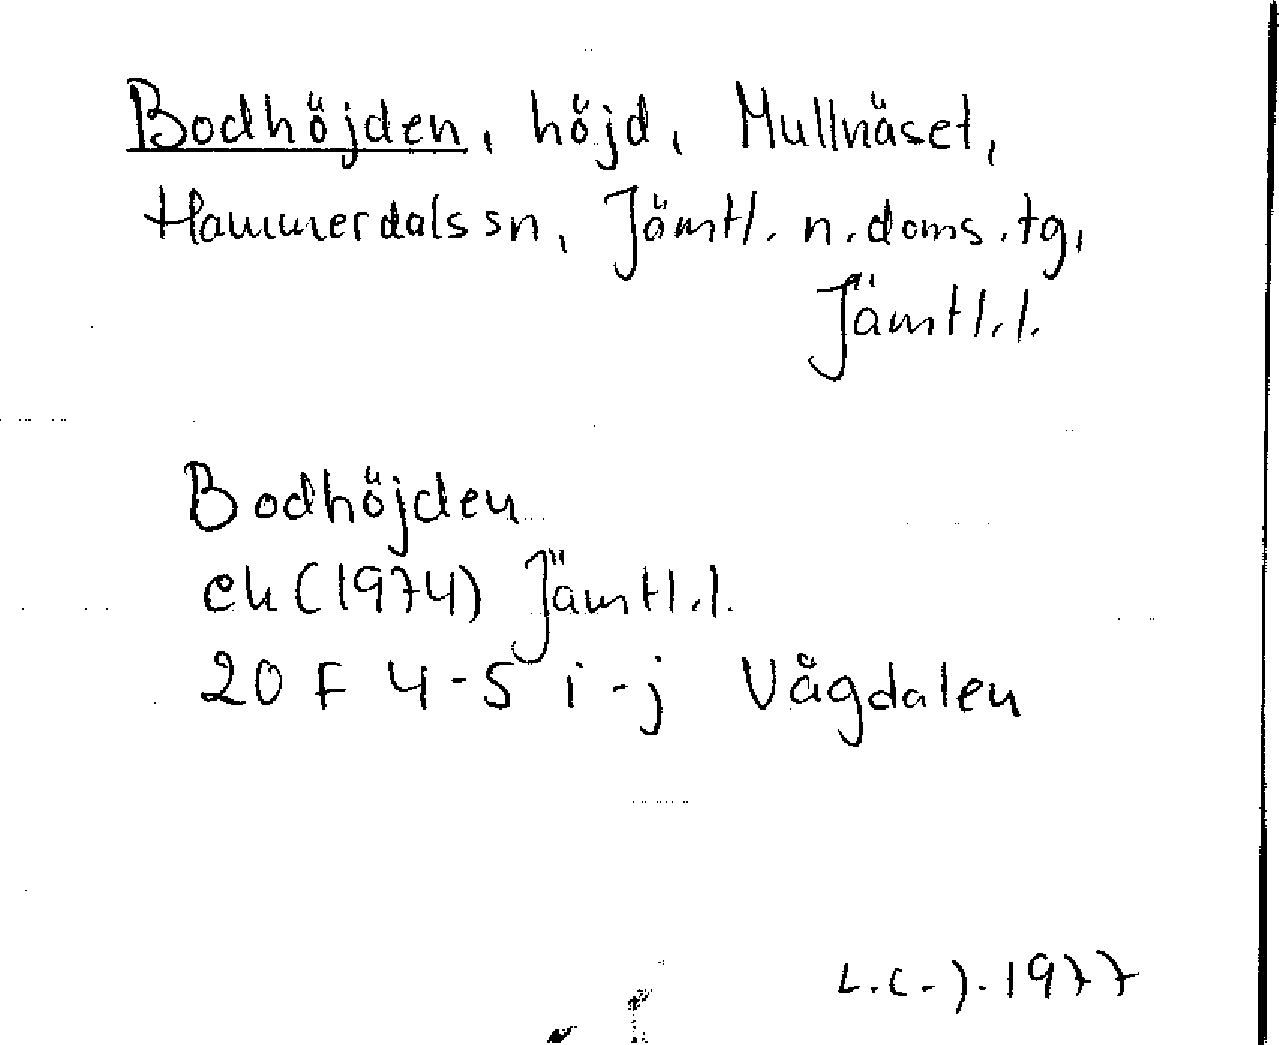 Bodhöjden, höjd, Mullnäset,
Hammerdals sn, Jämtl. n. doms. tg,
Jämtl. l.
Bodhöjden
ek (1974) Jämtl. l.
20 F 4-5 i-j Vågdalen
L.C-J. 1977